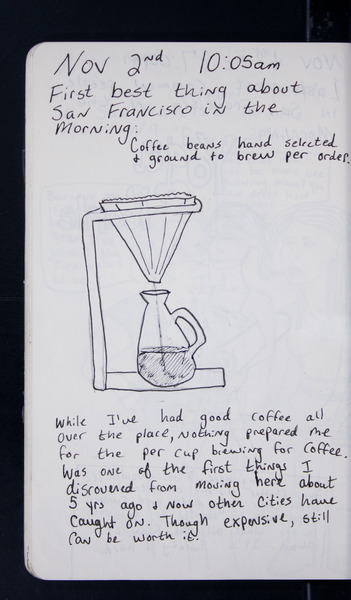 Nov 2nd 10:05am
First best thing about
San Francisco in the
Morning:
Coffee beans hand selected
& ground to brew per order.
While I've had good coffee all
over the place, nothing prepared me
for the per cup brewing for coffee.
Was one of the first things I
discovered from moving here about
5 yrs ago & now other cities have
caught on. Though expensive, still
can be worth it.